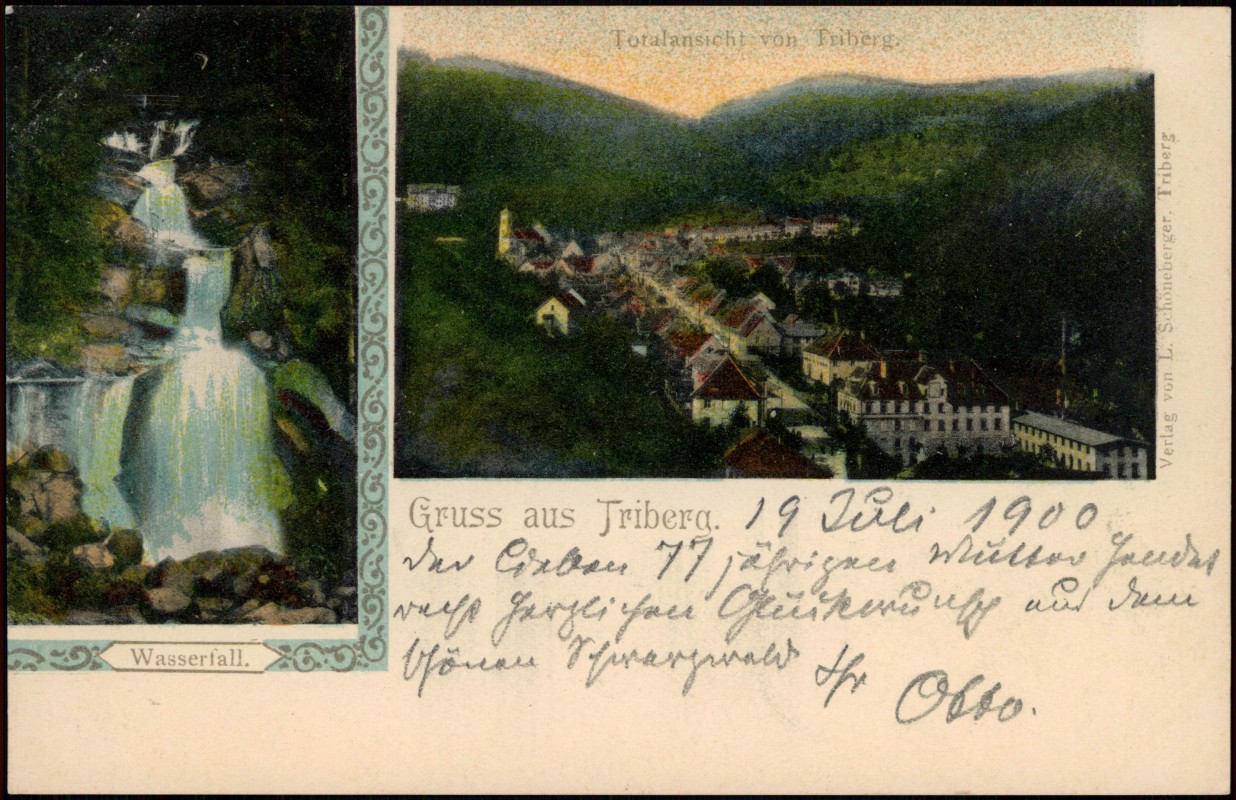 Totalansicht von Triberg.
Verlag von L. Schöneberger, Triberg
Wasserfall.
Gruss aus Triberg. 19 Juli 1900
der Lieben 77 jährigen Mutter sendet
recht herzlichen Glückwunsch aus dem
schönen Schwarzwald Ihr
Otto.